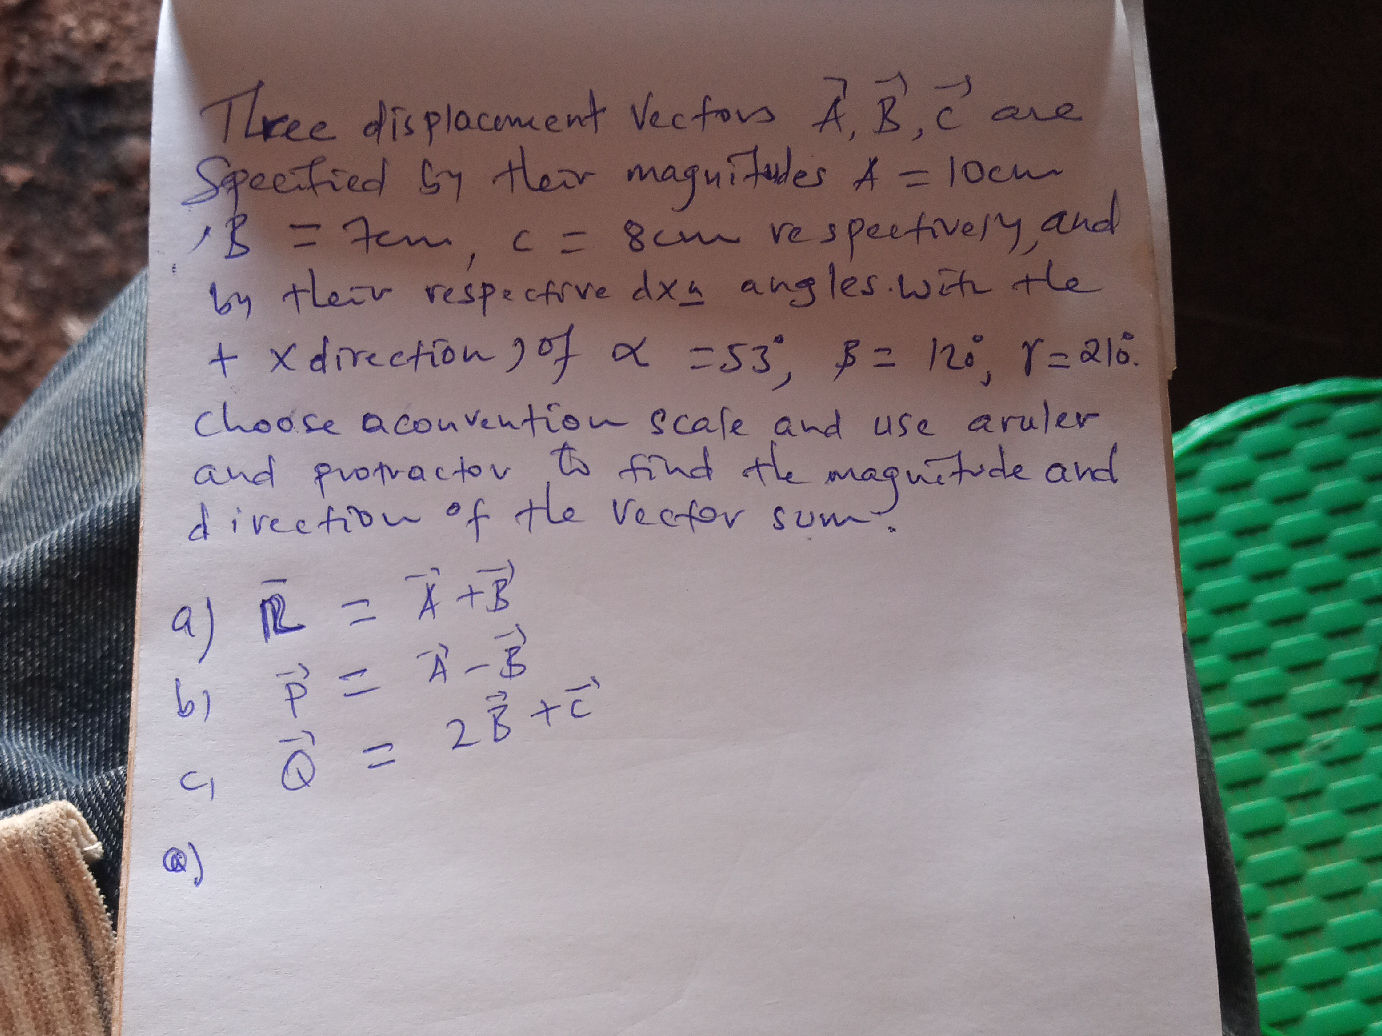 Three displacement Vectors A⃗, B⃗, C⃗ are
Specified by their magnitudes A = 10cm
, B = 7cm, c = 8cm respectively, and
by their respective dxn angles with the
+ x direction, of α = 53°, β = 120°, γ = 210°.
choose aconvention scale and use aruler
and protractor to find the magnitude and
direction of the vector sum?
a) R̄ = A⃗ + B⃗
b) P⃗ = A⃗ - B⃗
c, Q⃗ = 2B⃗ + C⃗
a)